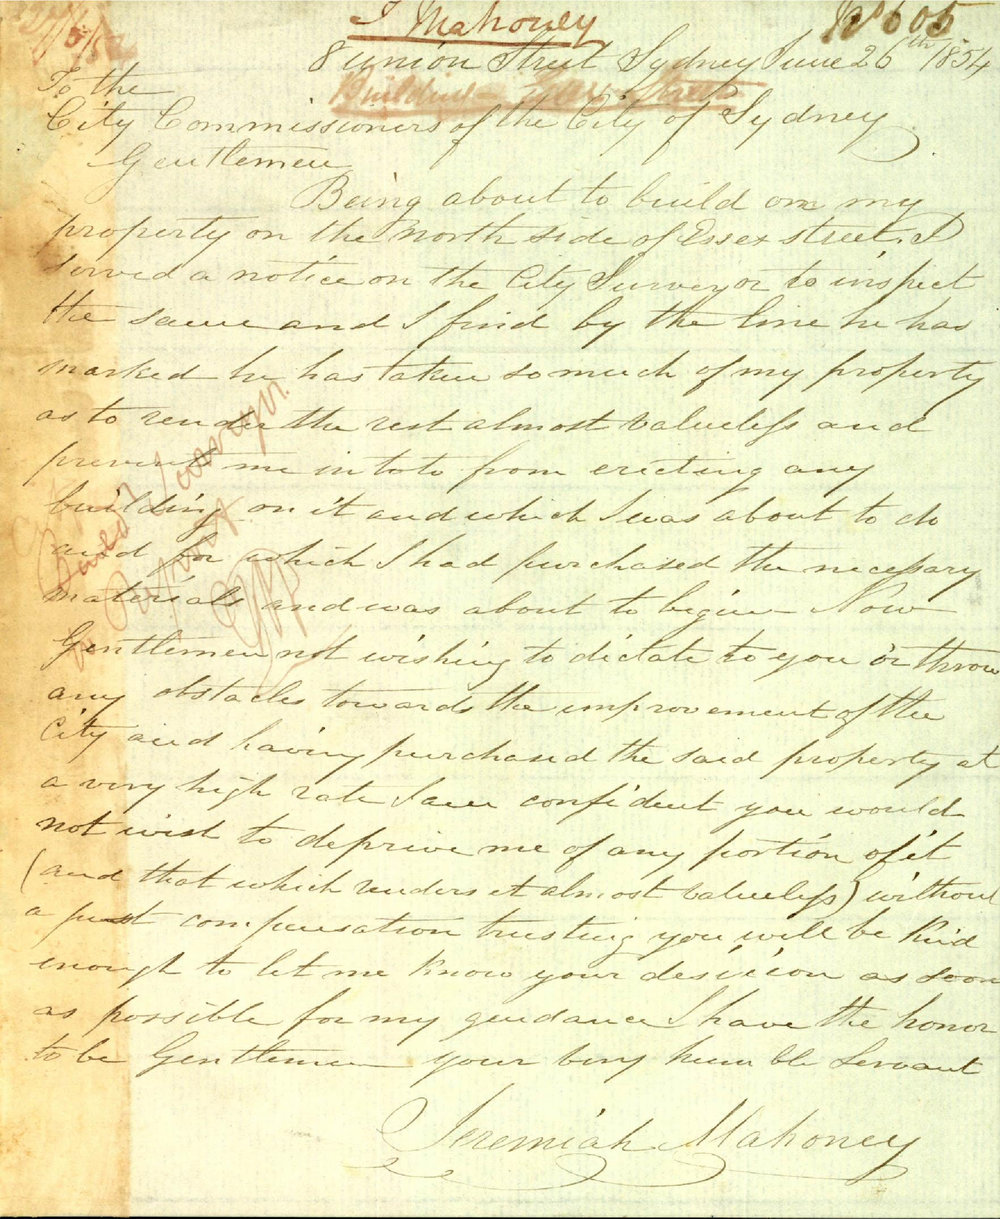 J Mahoney
No 605
8 Union Street Sydney June 26th 1854
Building Essex Street
To the
City Commissioners of the City of Sydney
Gentlemen
Being about to build on my
property on the North side of Essex street. I
served a notice on the City Surveyor to inspect
the same and I find by the line he has
marked he has taken so much of my property
as to render the rest almost valueless and
prevents me in toto from erecting any
building on it and which I was about to do
and for which I had purchased the necessary
materials and was about to begin Now
Gentlemen not wishing to dictate to you or throw
any obstacles towards the improvement of the
City and having purchased the said property at
a very high rate I am confident you would
not wish to deprive me of any portion of it
(and that which renders it almost valueless) without
a just compensation trusting you will be kind
enough to let me know your desicion as soon
as possible for my guidance I have the honor
to be Gentlemen your very humble servant
Jeremiah Mahoney
City Surveyor